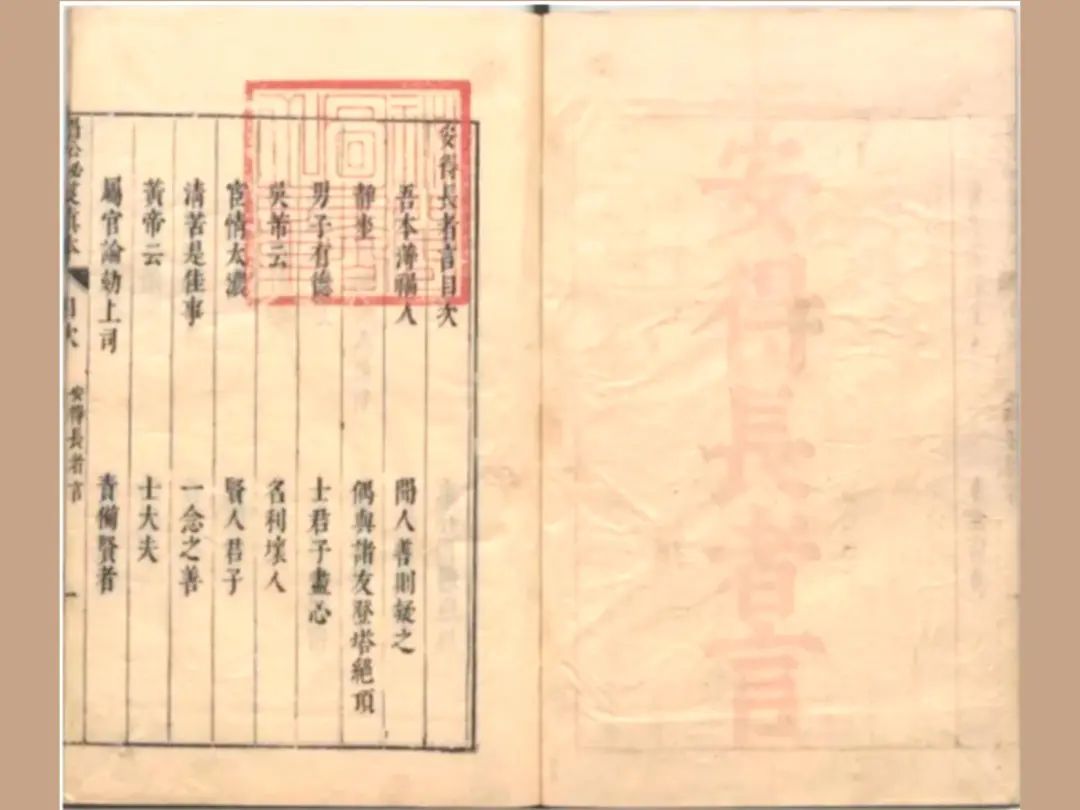 安得長者言
安得長者言目次
吾本薄福人　聞人善則疑之
靜坐　偶與諸友登塔絕頂
男子有德　士君子盡心
吳芾云　名利壞人
宦情太濃　賢人君子
清苦是佳事　一念之善
黃帝云　士大夫
屬官論劾上司　責備賢者
目次　安得長者言　一